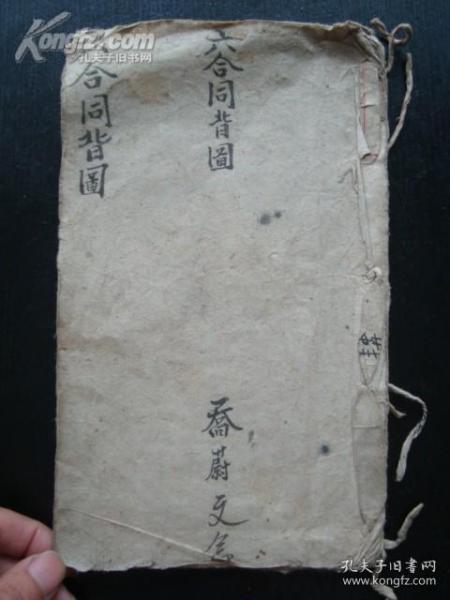 六合同背圖
喬蔚文
合同背圖
Kongfz.com
孔夫子旧书网
孔夫子旧书网
www.kongfz.com